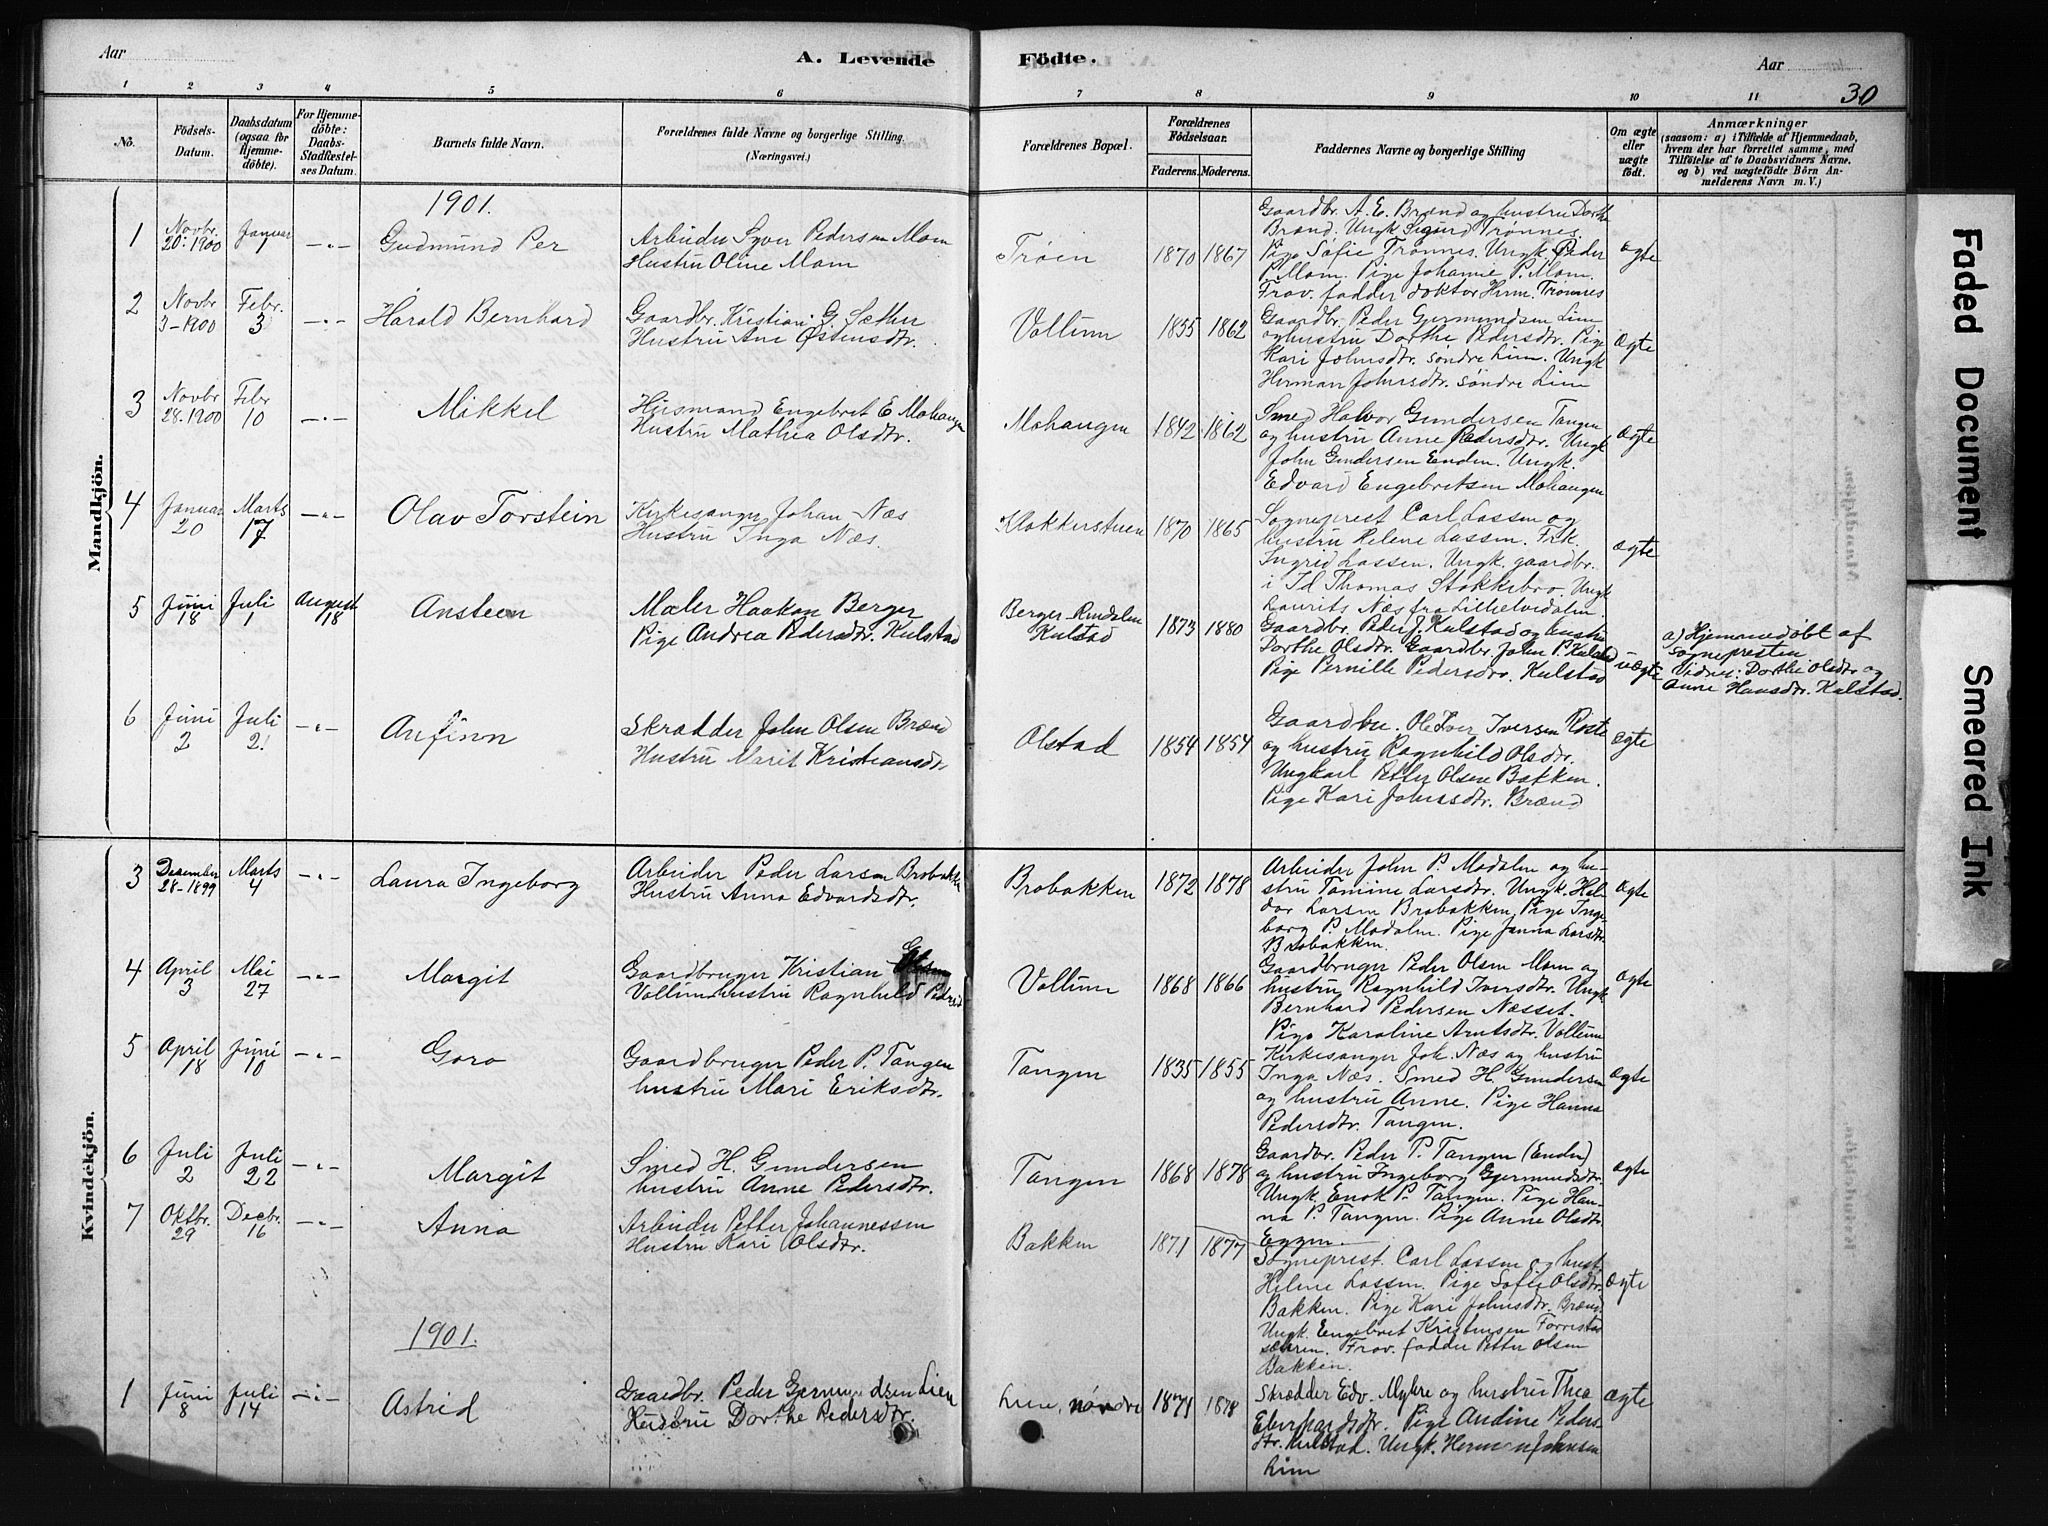 Aar
A. Levende
Födte.
Aar
30
1 2 3 4 5 6 7 8 9 10 11
No.
Födsels-
Datum.
Daabsdatum
(ogsaa for
Hjemme-
döbte).
For Hjemme-
döbte:
Daabs-
Stadfæstel-
ses Datum.
Barnets fulde Navn.
Forældrenes fulde Navne og borgerlige Stilling.
(Næringsvei.)
Forældrenes Bopæl.
Forældrenes
Födselsaar.
Faderens. Moderens.
Faddernes Navne og borgerlige Stilling
Om ægte
eller
uægte
födt.
Anmærkninger
(saasom: a) i Tilfælde af Hjemmedaab,
hvem der har forrettet samme, med
Tilföielse af to Daabsvidners Navne.
og b) ved uægtefödte Börn An-
melderens Navn m. V.)
Mandkjön.
1901.
1
Novbr.
20. 1900
Januar
Gudmund Per
Arbeider Syver Pedersen Mom
Hustru Oline Mom
Trøen
1870 1867
Gaardbr. A. E. Brænd og hustru Dorthe
Brænd. Ungk. Sigurd Trønnes.
Pige Sofie Trønnes. Ungk. Peder
P. Mom. Pige Johanne P. Mom.
Frav. fadder doktor Herm. Trønnes
ægte
2
Novbr
3-1900
Febr.
3
Harald Bernhard
Gaardbr. Kristian G. Sæther
Hustru Ane Østensdtr.
Vollum
1855 1862
Gaardbr. Peder Gjermundsen Lien
og hustru Dorthe Pedersdtr. Pige
Kari Johnsdtr. søndre Lien. Ungk
Herman Johnsdtr. søndre Lien
ægte
3
Novbr
28-1900
Febr
10
Mikkel
Husmand Engebret E Mohaugen
Hustru Mathea Olsdtr.
Mohaugen
1842 1862
Smed Halvor Gundersen Tangen
og hustru Anne Pedersdtr. Ungk
John Gundersen Enden. Ungk.
Edvard Engebretsen Mohaugen
ægte
4
Januar
20
Marts
17
Olav Torstein
Kirkesanger Johan Næs
Hustru Inga Næs.
Klokkerstuen
1870 1865
Sogneprest Carl Lassen og
hustru Helene Lassen. Frk.
Ingrid Lassen. Ungk. gaardbr.
i Id Thomas Stokkebro. Ungk
Laurits Næs fra Lilleelvedalen
ægte
5
Juni
18
Juli
1
August
18
Ansteen
Maler Haakon Berger
Pige Andrea Pedersdtr. Kulstad
Berger, Rendalen
Kulstad
1873 1880
Gaardbr. Peder J. Kulstad og hustru
Dorthe Olsdtr. Gaardbr. John P. Kulstad
Pige Pernille Pedersdtr. Kulstad
uægte
a) Hjemmedøbt af
sognepresten
Vidner: Dorthe Olsdtr og
Anne Hansdtr. Kulstad.
6
Juni
2
Juli
21
Anfinn
Skrædder John Olsen Brænd
Hustru Marit Kristiansdtr
Olstad
1854 1854
Gaardbr. Ole Iver Iversen Koste
og hustru Ragnhild Olsdtr.
Ungkarl Petter Olsen Bakken.
Pige Kari Johnsdtr. Brænd
ægte
Kvindekjön.
3
December
28-1899
Marts
4
Laura Ingeborg
Arbeider Peder Larsen Brobakken
Hustru Anna Edvardsdtr.
Brobakken
1872 1878
Arbeider John P. Modalen og hu-
stru Tomine Larsdtr. Ungk. Hal-
dor Larsen Brobakken. Pige Inge
borg P. Modalen. Pige Janna Larsdtr.
Brobakken.
ægte
4
April
3
Mai
27
Margit
Gaardbruger Kristian G
Vollum hustru Ragnhild Pedersdtr
Vollum
1868 1866
Gaardbruger Peder Olsen Mom og
hustru Ragnhild Iversdtr. Ungk
Bernhard Pedersen Næsset.
Pige Karoline Arntsdtr. Vollum
ægte
5
April
18
Juni
10
Goro
Gaardbruger Peder P. Tangen
hustru Mari Eriksdtr.
Tangen
1835 1855
Kirkesanger Joh. Næs og hustru
Inga Næs. Smed H. Gundersen
og hustru Anne. Pige Hanna
Pedersdtr. Tangen.
ægte
6
Juli
2
Juli
22
Margit
Smed H. Gundersen
hustru Anne Pedersdtr.
Tangen
1868 1878
Gaardbr. Peder P. Tangen (Enden)
og hustru Ingeborg Gjermundsdtr.
Ungk. Enok P. Tangen. Pige Han-
na P. Tangen. Pige Anne Olsdtr
Eggen.
ægte
7
Oktbr.
29
Decbr.
16
Anna
Arbeider Petter Johannessen
Hustru Kari Olsdtr.
Bakken
1871 1877
Sogneprest Carl Lassen og hust.
Helene Lassen. Pige Sofie Olsdtr.
Bakken. Pige Kari Johnsdtr. Brænd
Ungk. Engebret Kristensen Forrestad
sætren. Frav. fadder Petter Olsen
Bakken.
ægte
1901.
1
Juni
8
Juli
14
Astrid
Gaardbr. Peder Germundsen Lien
Hustru Dorthe Pedersdtr.
Lien, nørdre
1871 1878
Skrædder Edv. Myhre og hustru Thea
Eberhardsdtr. Pige Andine Peders-
dtr. Kulstad. Ungk. Herman Johnsen
Lien
ægte
Faded Document
Smeared Ink